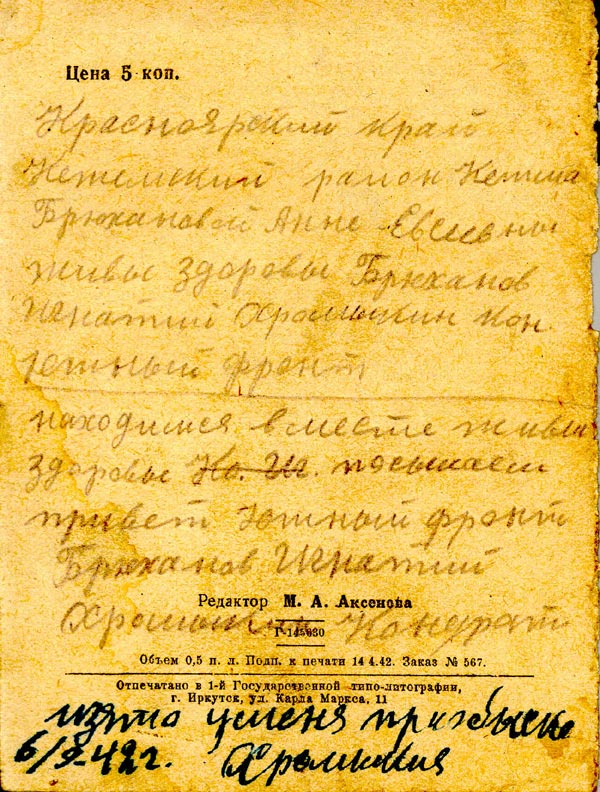 Цена 5 коп.
Красноярский край
Кежемский район Кежма
Брюхановой Анне Евсеевны
живы здоровы Брюханов
Игнатий Хромыкин Кон
Южный фронт
находимся вместе живы
здоровы Ко. Иг. посылаем
привет Южный фронт
Брюханов Игнатий
Редактор М. А. Аксенова
Г-145630
Хромыкин Кондрат
Объем 0,5 п. л. Подп. к печати 14 4.42. Заказ № 567.
Отпечатано в 1-й Государственной типо-литографии,
г. Иркутск, ул. Карла Маркса, 11
изято уменя пригобыске
6/9-42 г. Хромыкин